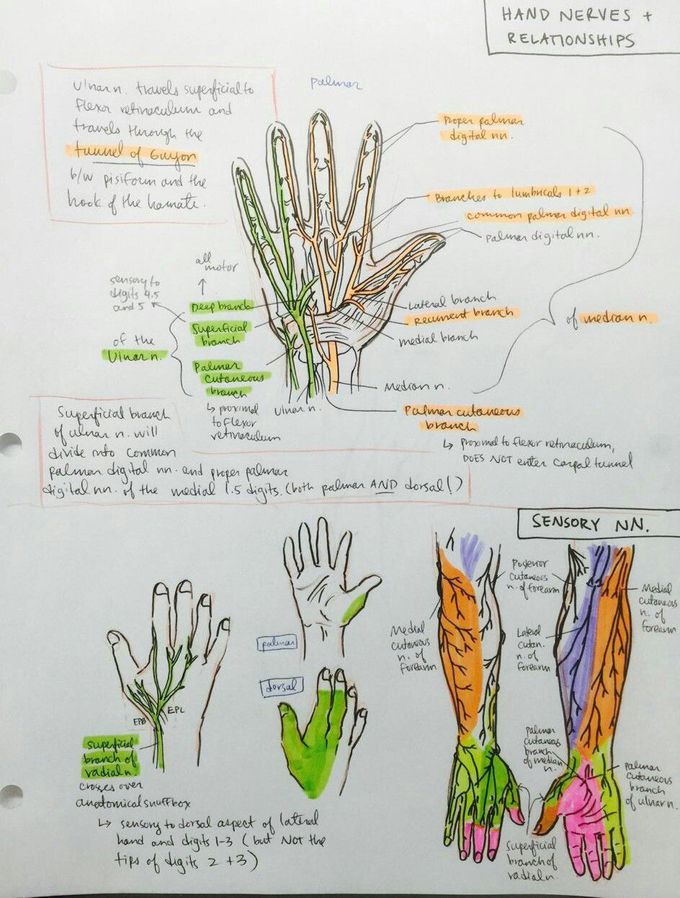 HAND NERVES +
RELATIONSHIPS
Ulnar n. travels superficial to
flexor retinaculum and
travels through the
tunnel of Guyon
b/w pisiform and the
hook of the hamate.
palmar
Proper palmar
digital nn.
Branches to lumbricals 1+2
common palmar digital nn
palmar digital nn.
Lateral branch
Recurrent branch
medial branch
of median n.
all
motor
sensory to
digits 4.5
and 5
Deep branch
Superficial
branch
of the
Ulnar n.
Palmar
cutaneous
branch
↳ proximal
to flexor
retinaculum
Ulnar n.
Median n.
Palmar cutaneous
branch
↳ proximal to flexor retinaculum,
DOES NOT enter carpal tunnel
Superficial branch
of ulnar n. will
divide into common
palmar digital nn. and proper palmar
digital nn. of the medial 1.5 digits. (both palmar AND dorsal!)
SENSORY NN.
palmar
dorsal
EPB
EPL
superficial
branch of
radial n.
crosses over
anatomical snuffbox
↳ sensory to dorsal aspect of lateral
hand and digits 1-3 (but NOT the
tips of digits 2+3)
Medial
cutaneous
n. of
forearm
Posterior
cutaneous
n. of forearm
Lateral
cutan.
n. of
forearm
Medial
cutaneous
n. of
forearm
Palmar
cutaneous
branch
of median
n.
Palmar
cutaneous
branch
of ulnar n.
Superficial
branch of
radial n.